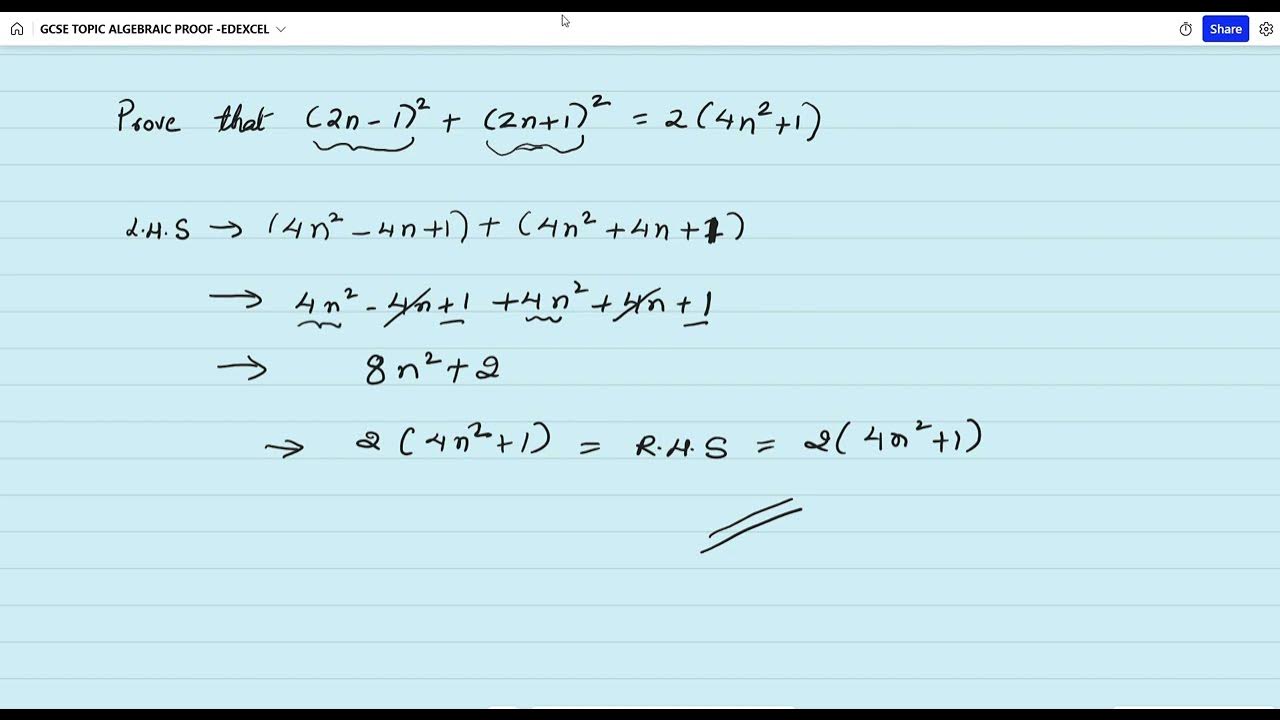 GCSE TOPIC ALGEBRAIC PROOF -EDEXCEL
Share
Prove that (2n - 1)² + (2n+1)² = 2(4n²+1)
L.H.S → (4n² - 4n+1) + (4n² + 4n + 1)
→ 4n² - 4n + 1 + 4n² + 4n + 1
→ 8n² + 2
→ 2(4n²+1) = R.H.S = 2(4n²+1)